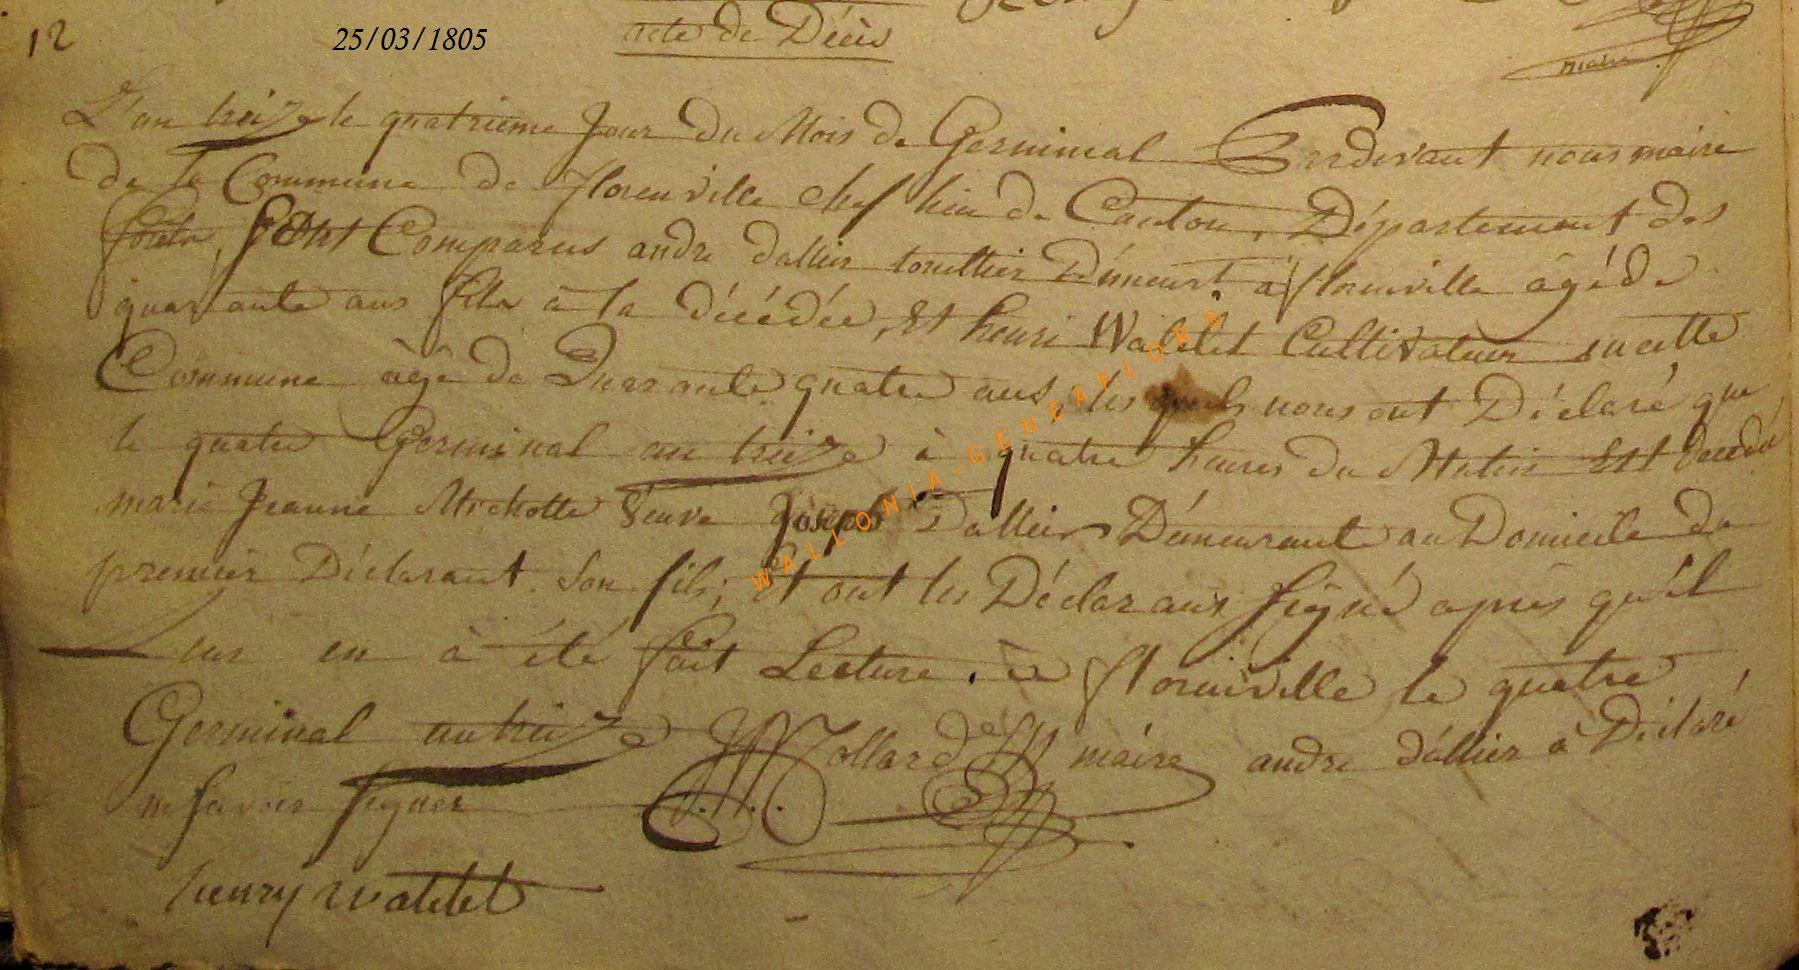 12
25/03/1805
acte de Décès
maire
L'an treize le quatrieme Jour du Mois de Germinal Pardevant nous maire
de la Commune de florenville chef lieu de Canton, Département des
forêts, sont Comparus andre dallier Demeurt à florenville âgé de
quarante ans fils à la décédée, Et henri Watelet Cultivateur en cette
Commune âgé de Quarante quatre ans les quels nous ont Déclaré que
le quatre Germinal an treize à quatre heures du Matin Est decedé
marie Jeanne Michotte Veuve Joseph Dallier Démeurant au Domicile du
premier Déclarant son fils, Et ont les Déclarans signé apres qu'il
Leur en à été fait Lecture. à florenville le quatre
Germinal an treize Mollard maire andre dallier à Déclaré
ne savoir signer
henry watelet
WALLONIA-GENEAFLORE